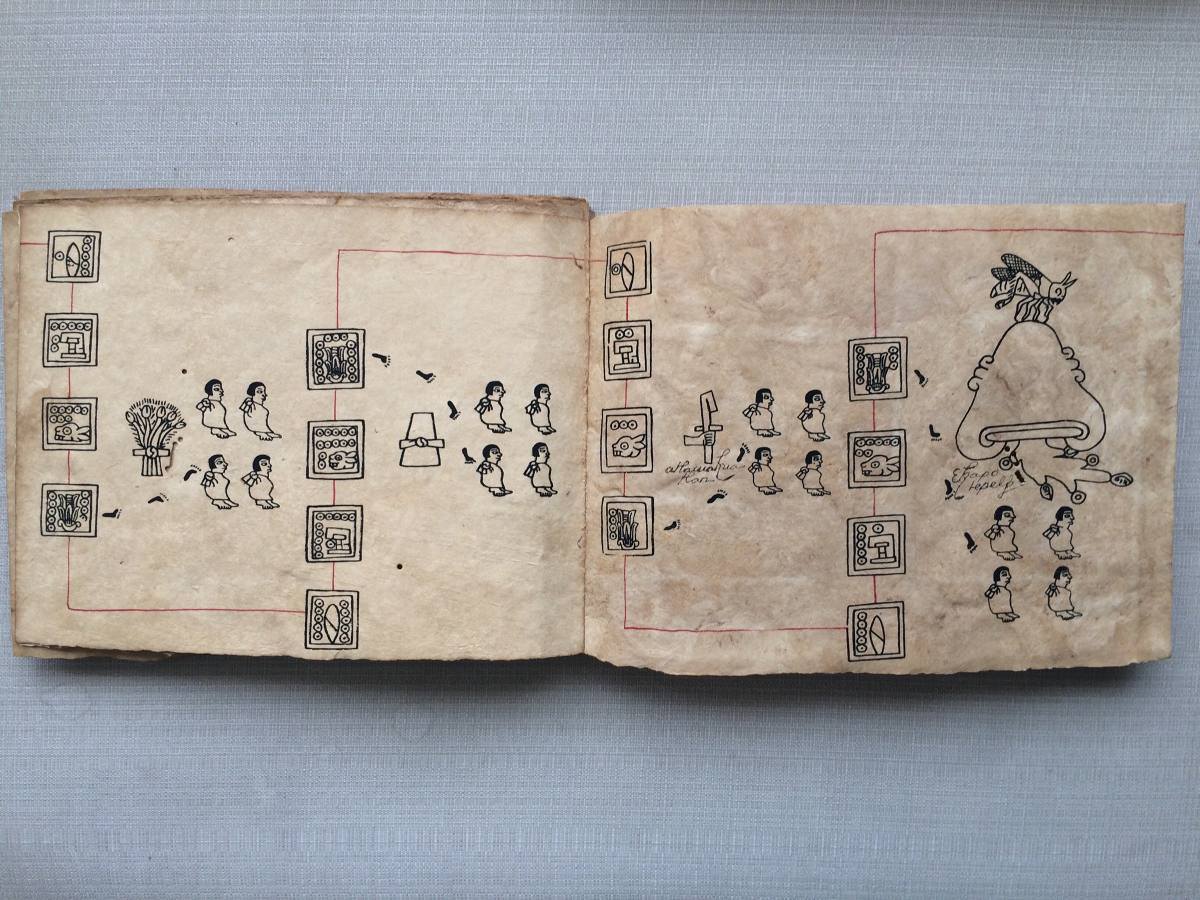 atlacuihua
yan
Chapo
ltepec